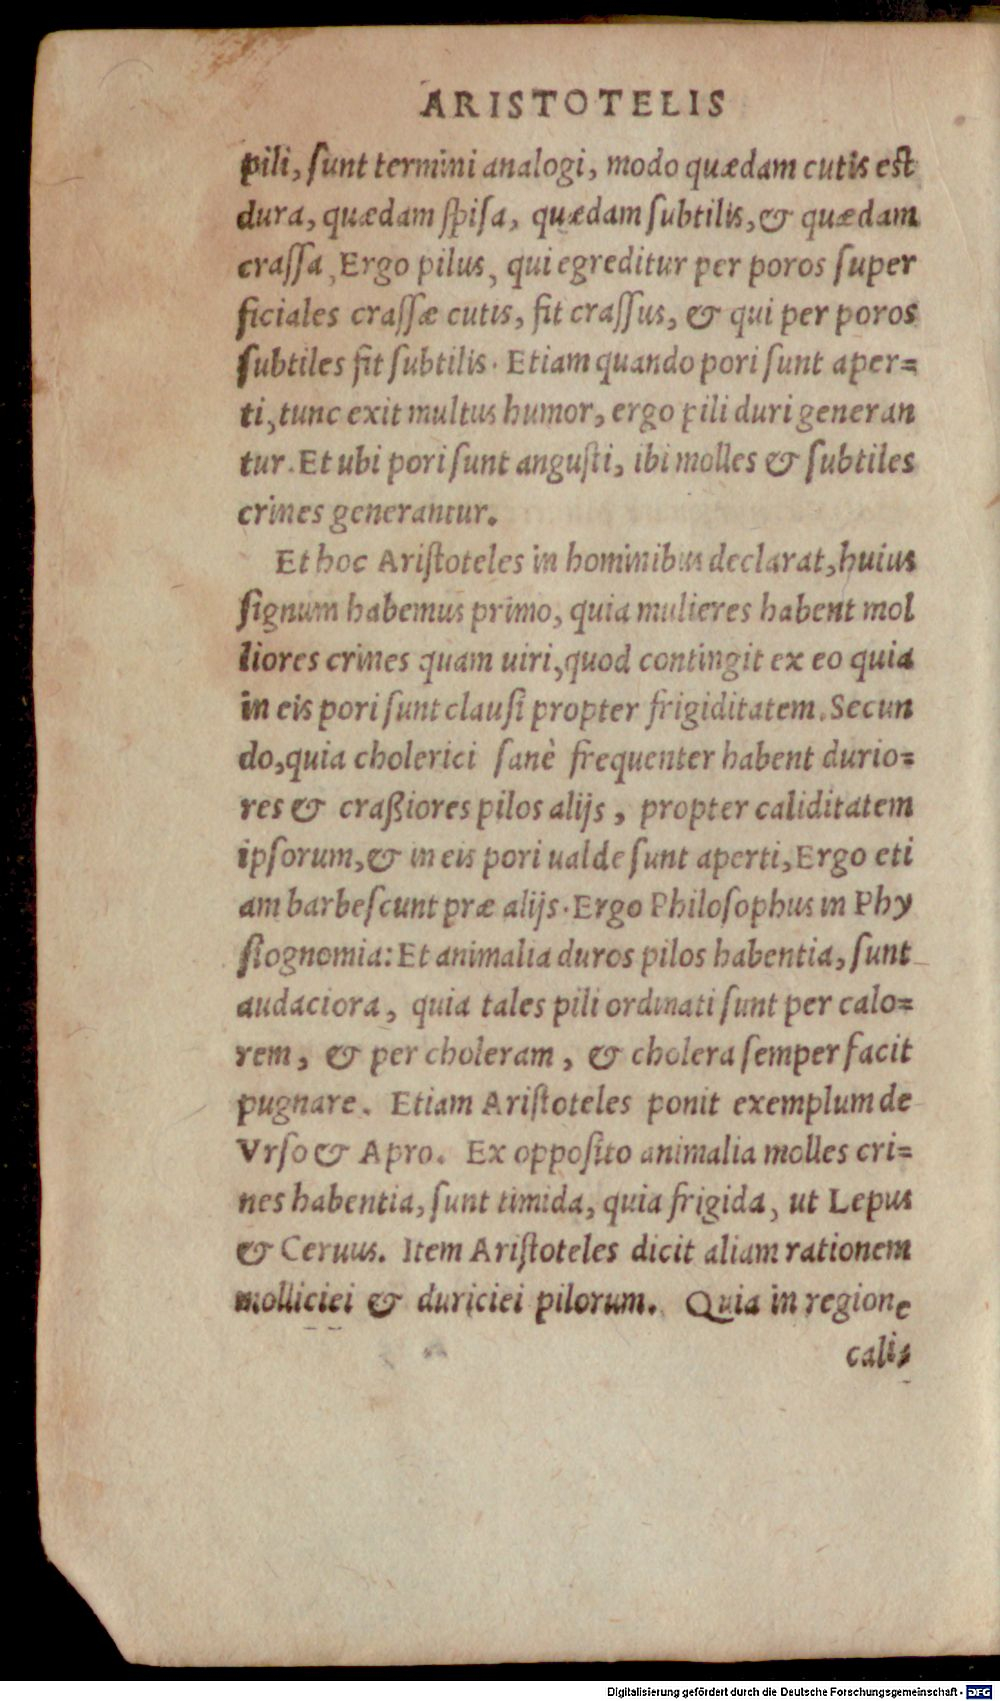 ARISTOTELIS
pili, ſunt termini analogi, modo quædam cutis est
dura, quædam ſpiſa, quædam ſubtilis, & quædam
craſſa, Ergo pilus, qui egreditur per poros ſuper
ficiales craſſæ cutis, fit craſſus, & qui per poros
ſubtiles fit ſubtilis. Etiam quando pori ſunt aper=
ti, tunc exit multus humor, ergo pili duri generan
tur. Et ubi pori ſunt anguſti, ibi molles & ſubtiles
crines generantur.
Et hoc Ariſtoteles in hominibus declarat, huius
ſignum habemus primo, quia mulieres habent mol
liores crines quam uiri, quod contingit ex eo quia
in eis pori ſunt clauſi propter frigiditatem. Secun
do, quia cholerici ſanè frequenter habent durio=
res & craßiores pilos alijs, propter caliditatem
ipſorum, & in eis pori ualde ſunt aperti, Ergo eti
am barbeſcunt præ alijs. Ergo Philoſophus in Phy
ſiognomia: Et animalia duros pilos habentia, ſunt
audaciora, quia tales pili ordinati ſunt per calo=
rem, & per choleram, & cholera ſemper facit
pugnare. Etiam Ariſtoteles ponit exemplum de
Vrſo & Apro. Ex oppoſito animalia molles cri=
nes habentia, ſunt timida, quia frigida, ut Lepus
& Ceruus. Item Ariſtoteles dicit aliam rationem
molliciei & duriciei pilorum. Quia in regione
calis
Digitalisierung gefördert durch die Deutsche Forschungsgemeinschaft - DFG